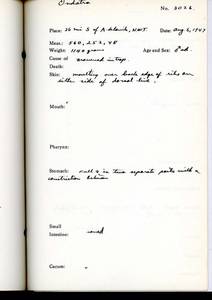 Ondatra
No. 3026
Place: 26 mi S of Aklavik, NWT. Date: Aug 6, 1947
Meas.: 560, 252, 78
Weight: 1140 grams Age and Sex: ad.
Cause of
Death: drowned in trap.
Skin: moulting over back edge of ribs on
either side of dorsal line.
Mouth:
Pharynx:
Stomach: full & in two separate parts with a
constriction between
Small
Intestine:
Cecum: